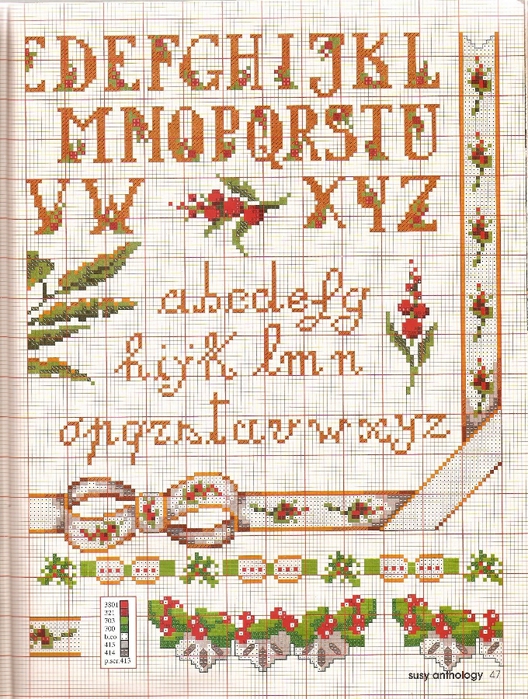 CDEFGHIJKL
MNOPQRSTU
VW XYZ
abcdefg
hijk lmn
opqrstuvwxyz
3801
321
703
700
b.co
415
414
p.scr.413
susy anthology 47